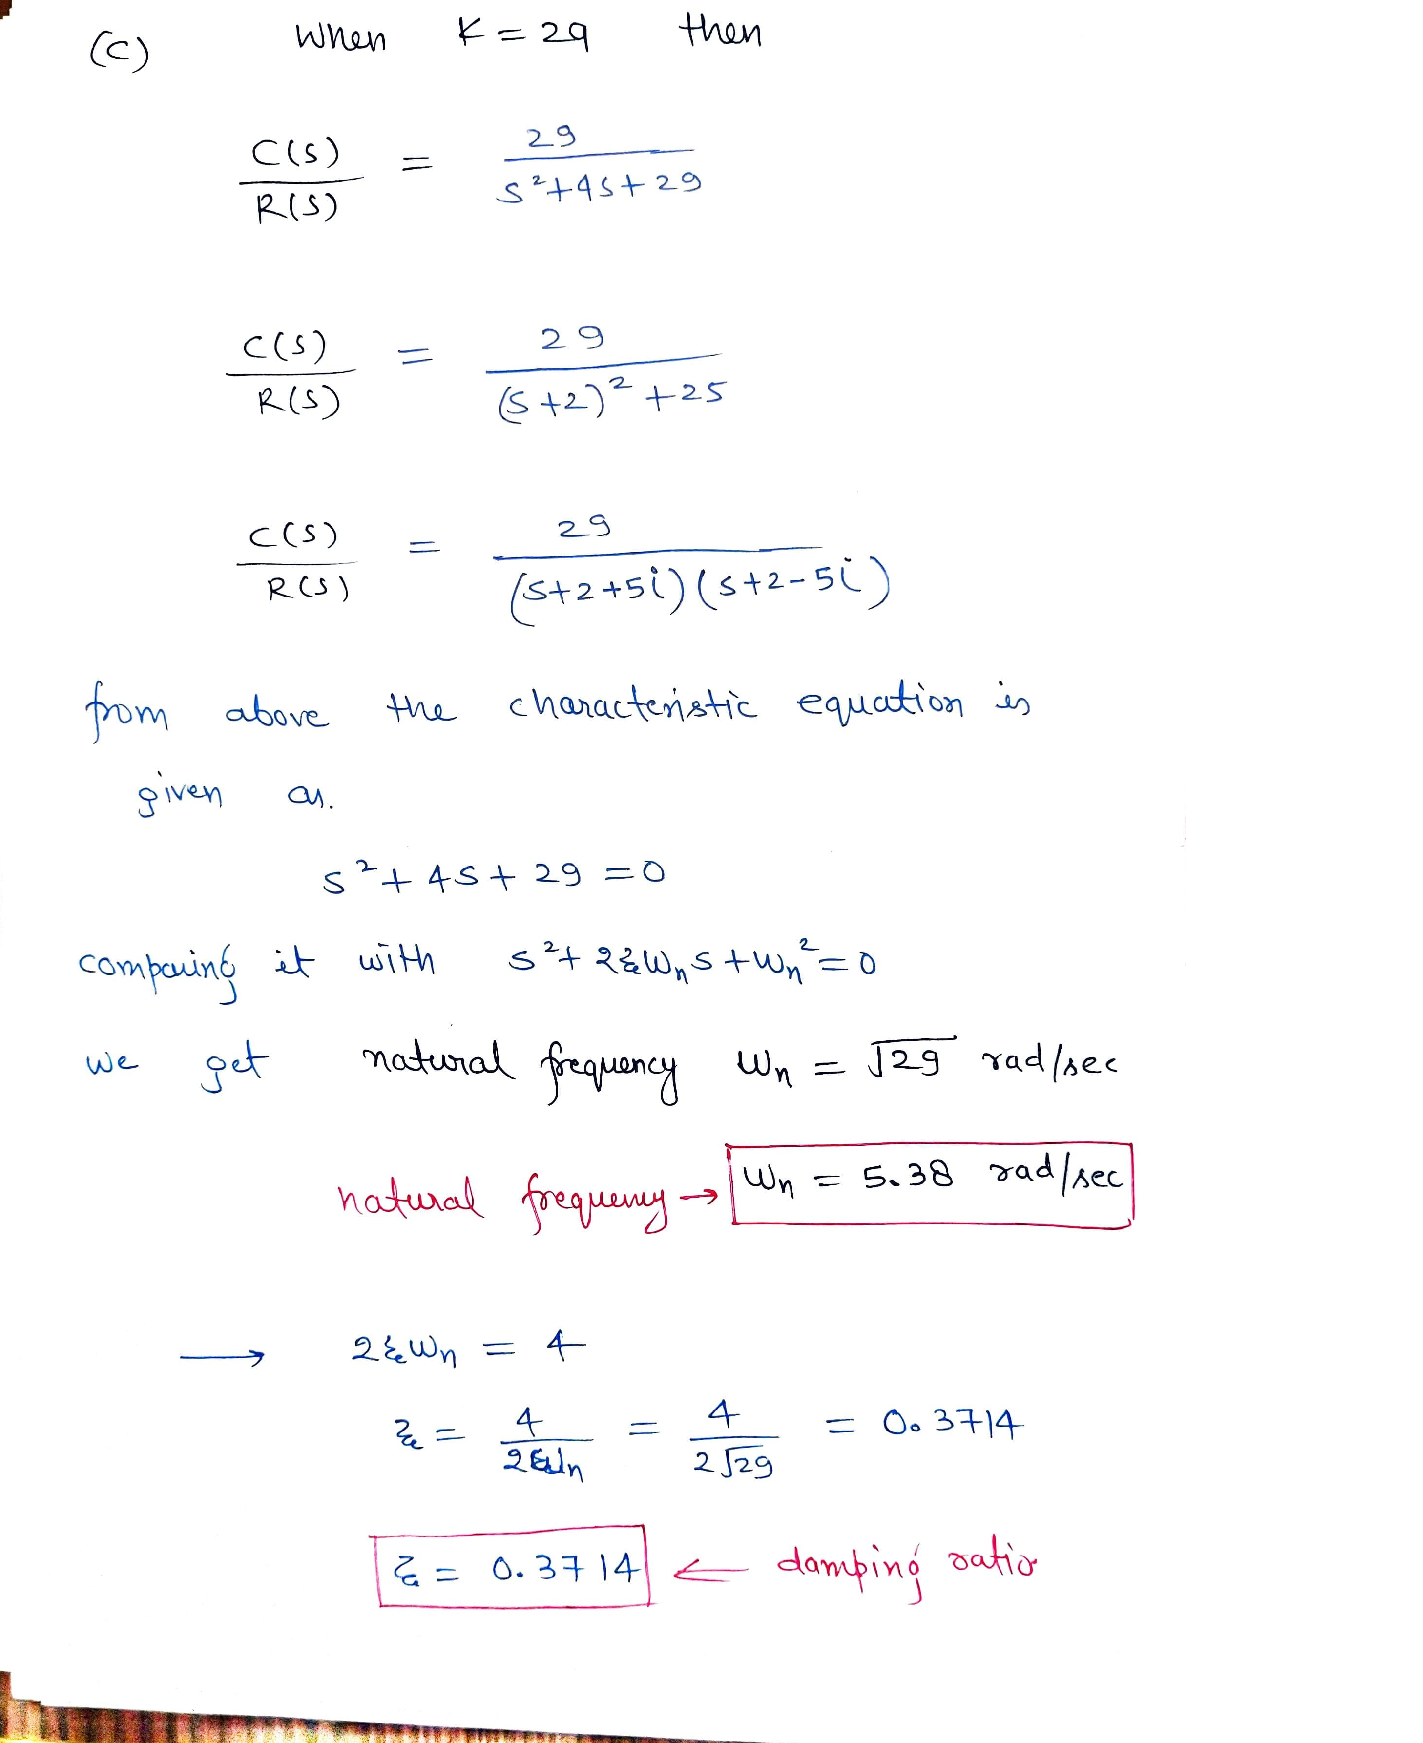 (C) When K = 29 then
C(s)/R(s) = 29/(s²+4s+29)
C(s)/R(s) = 29/((s+2)²+25)
C(s)/R(s) = 29/((s+2+5i)(s+2-5i))
from above the characteristic equation is
given as.
s²+4s+29=0
comparing it with s²+2ξWns+Wn²=0
we get natural frequency Wn = √29 rad/sec
natural frequency → Wn = 5.38 rad/sec
→ 2ξWn = 4
ξ = 4/2Wn = 4/2√29 = 0.3714
ξ = 0.3714 ← damping ratio